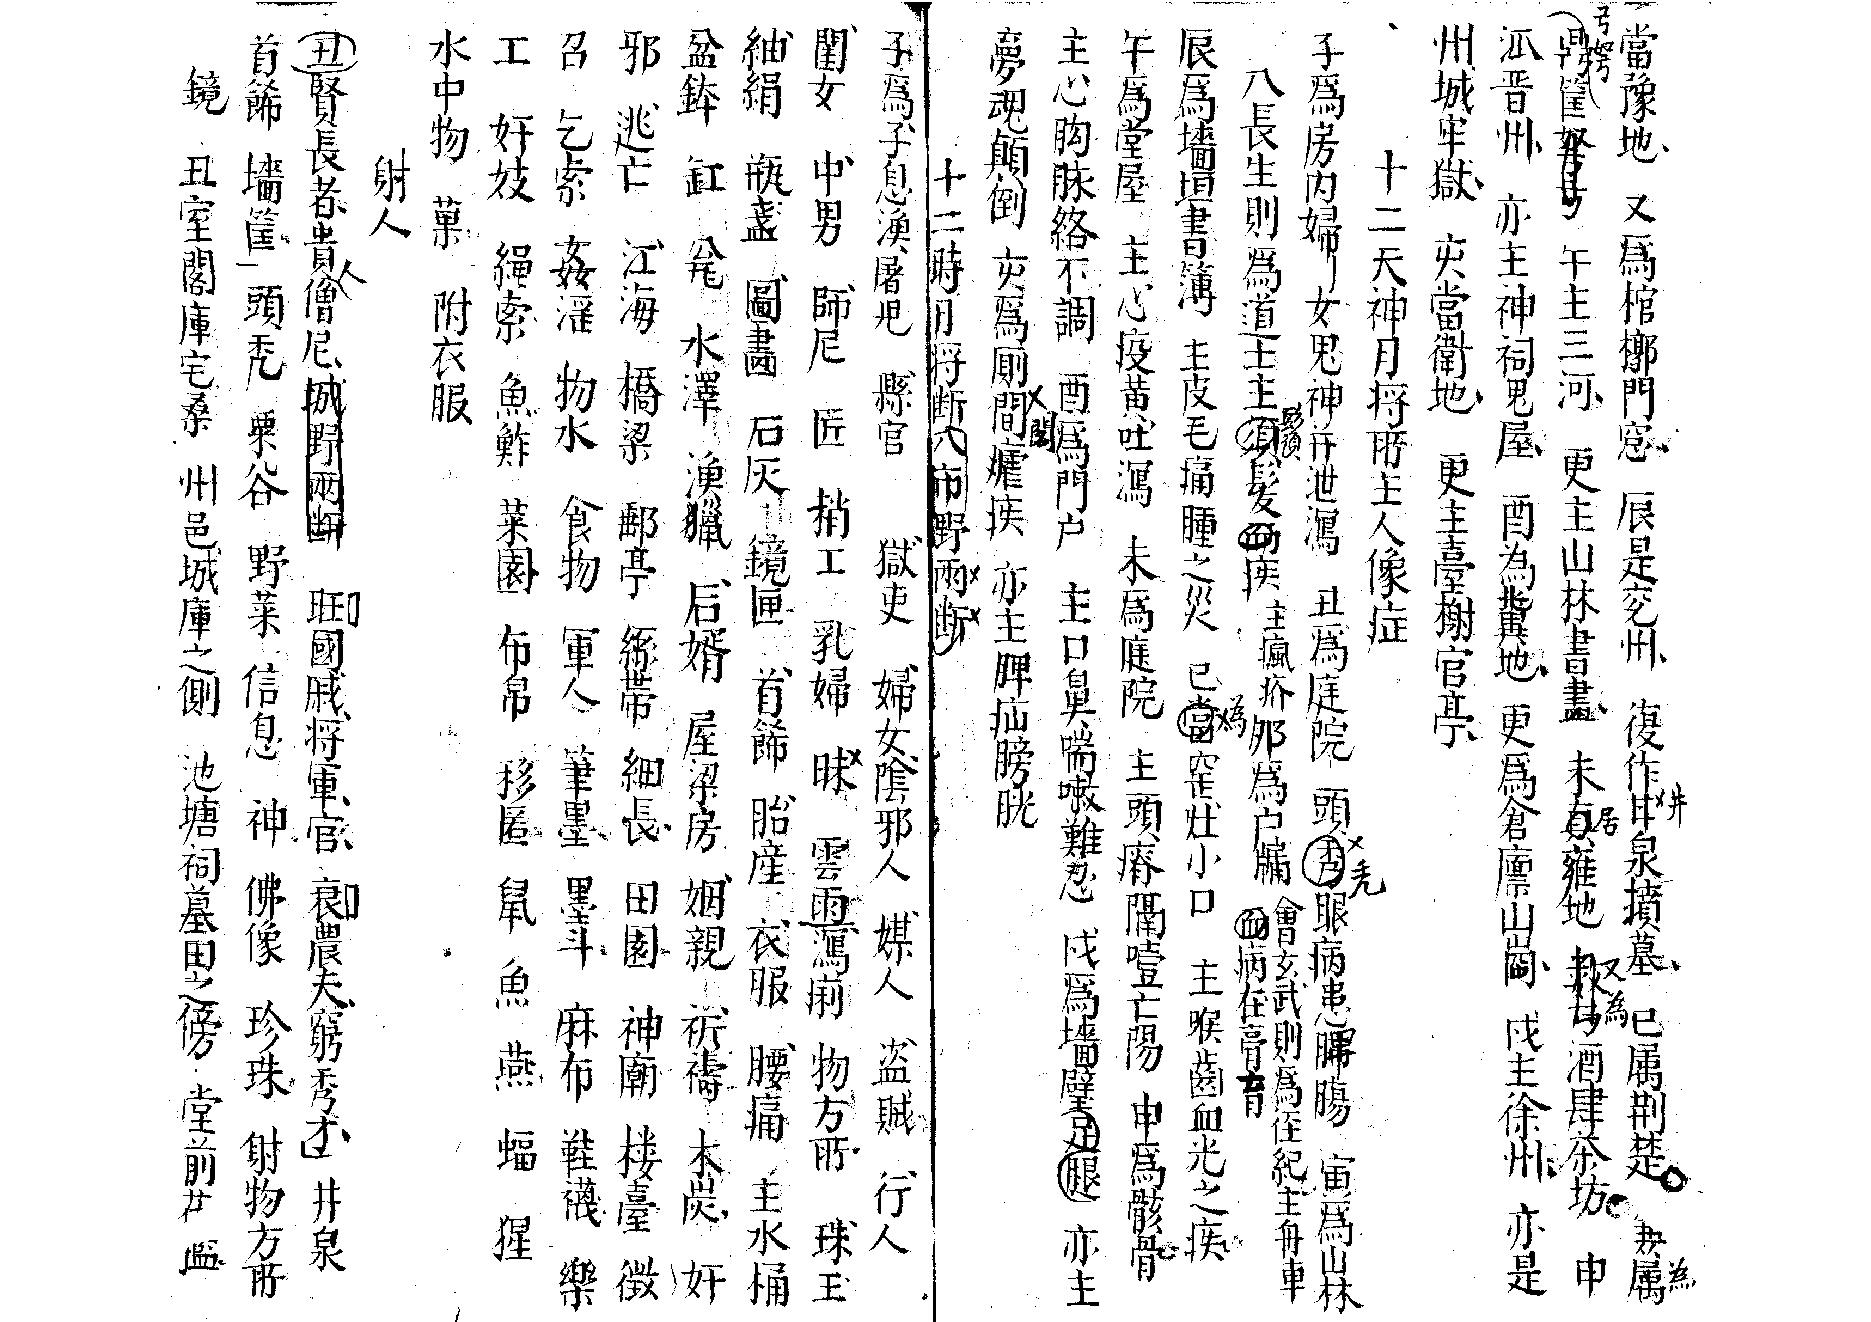 當豫地、又爲棺槨門窓、辰是兖州、復作井泉墳墓、巳属荆楚 為
午主三河、更主山林書畫、未 居雍地 又為酒肆茶坊 申
派晋州、亦主神祠鬼屋、酉為冀地、更爲倉廪山崗、戌主徐州、亦是
州城牢獄、亥當衛地、更主臺榭官亭、
十二天神月將所主人像症
子爲房内婦女鬼神并泄瀉 丑爲庭院 頭禿眼病患脾腸 寅爲山林
八長生則爲道士主鬚髮 疾 主瘋疥 卯爲户牖 會玄武則爲 紀主舟車 病在膏肓
辰爲墻垣書簿 主皮毛痛腫之災 巳為窑灶小口 主喉齒血光之疾、
午爲堂屋 主心疫黄吐瀉 未爲庭院 主頭瘠隔噎亡陽 申爲骸骨
主心胸脉絡不調 酉爲門户 主口鼻喘嗽難忍 戌爲墻壁足腿 亦主
夢魂顛倒 亥爲厠間瘧疾 亦主脾疝膀胱
十二時月将断穴市野雨断
子爲子息漁屠兒 縣官 獄吏 婦女陰邪人 媒人 盗賊 行人
閨女 中男 師尼 匠 梢工 乳婦 昧 雲雨瀉痢 物方所 珠玉
紬絹 瓶盞 圖畵 石灰 鏡匣 首餙 胎産 衣服 腰痛 主水桶
盆鉢 缸 瓮 水澤 漁獵 后婿 屋梁房 姻親 祈禱 木炭 奸
邪 逃亡 江海 橋梁 郵亭 絲帶 細長 田園 神廟 楼臺 微
召 乞索 姦滛 物水 食物 軍人 筆墨 墨斗 麻布 鞋襪 樂
工 奸妓 繩索 魚鮓 菜園 布帛 移匿 鼠 魚 燕 蝠 猩
水中物 菓 附衣服
射人
丑賢長者貴人僧尼、城野雨断 旺國戚将軍官、衰農夫窮秀才、井泉
首餙 墻筐 頭禿 粟谷 野菜 信息 神 佛像 珍珠 射物方所
鏡 丑室閣庫宅桑 州邑城庫之側 池塘祠墓田之傍 堂前